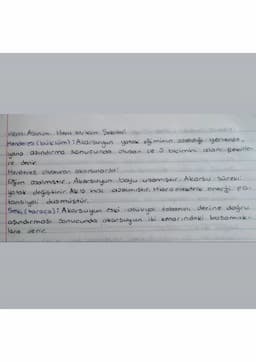 Hem Aşınım Hem Birikim Şekilleri
Menderes (büklüm): Akarsuyun yatak eğiminin azaldığı yerlerde,
yana aşındırma sonucunda oluşan ve S biçimini alan şekiller-
e denir.
Menderes oluşturan akarsularda:
Eğim azalmıştır, Akarsuyun boyu uzamıştır. Akarsu sürekli
yatak değiştirir. Akış hızı azalmıştır. Hidroelektrik enerji po-
tansiyeli düşmüştür.
Seki (taraça): Akarsuyun eski alüvyal tabanını derine doğru
aşındırması sonucunda akarsuyun iki kenarındaki basamak-
lara denir.